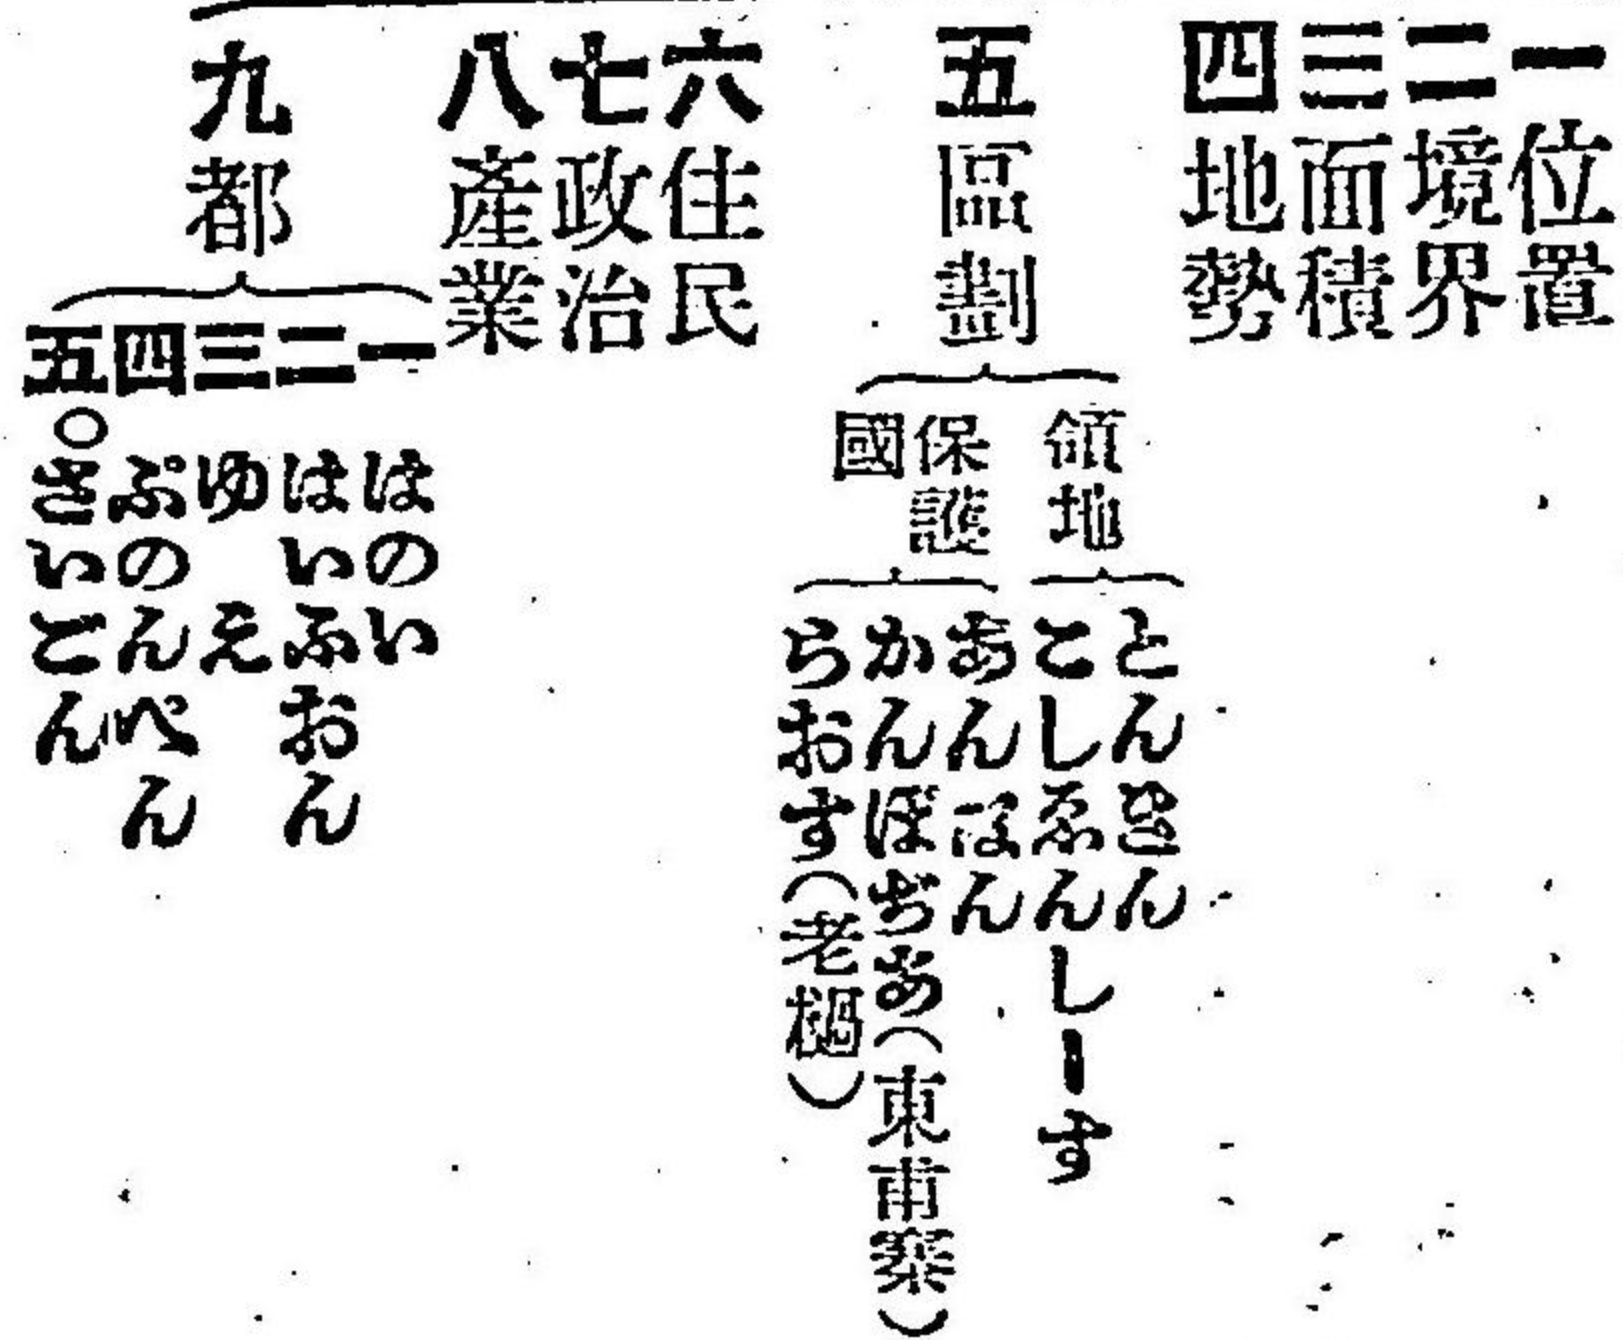 一 位置
二 境界
三 面積
四 地勢
五 區劃
領地
とんきん
こしゑんしーす
保護
國
あんなん
かんぼぢあ(東甫寨)
らおす(老撾)
六 住民
七 政治
八 產業
九 都
一 はのい
二 はいふおん
三 ゆえ
四 ぷのんぺん
五 ○さいごん